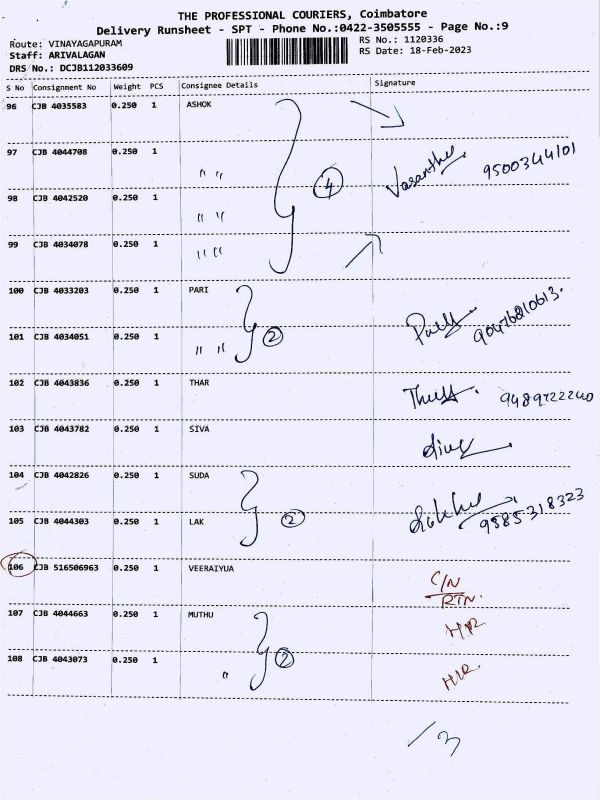 THE PROFESSIONAL COURIERS, Coimbatore
Delivery Runsheet - SPT - Phone No.:0422-3505555 - Page No.:9
Route: VINAYAGAPURAM RS No.: 1120336
Staff: ARIVALAGAN RS Date: 18-Feb-2023
DRS No.: DCJB112033609
S No Consignment No Weight PCS Consignee Details Signature
96 CJB 4035583 0.250 1 ASHOK
97 CJB 4044708 0.250 1 " " Vasantha 9500344101
4
98 CJB 4042520 0.250 1 " "
99 CJB 4034078 0.250 1 " "
100 CJB 4033203 0.250 1 PARI
2 90476810613.
101 CJB 4034051 0.250 1 " "
102 CJB 4043836 0.250 1 THAR 9489722240
103 CJB 4043782 0.250 1 SIVA
104 CJB 4042826 0.250 1 SUDA
2 9585318323
105 CJB 4044303 0.250 1 LAK
106 CJB 516506963 0.250 1 VEERAIYUA C/N
RTN.
107 CJB 4044663 0.250 1 MUTHU HR
2
108 CJB 4043073 0.250 1 " HR
13